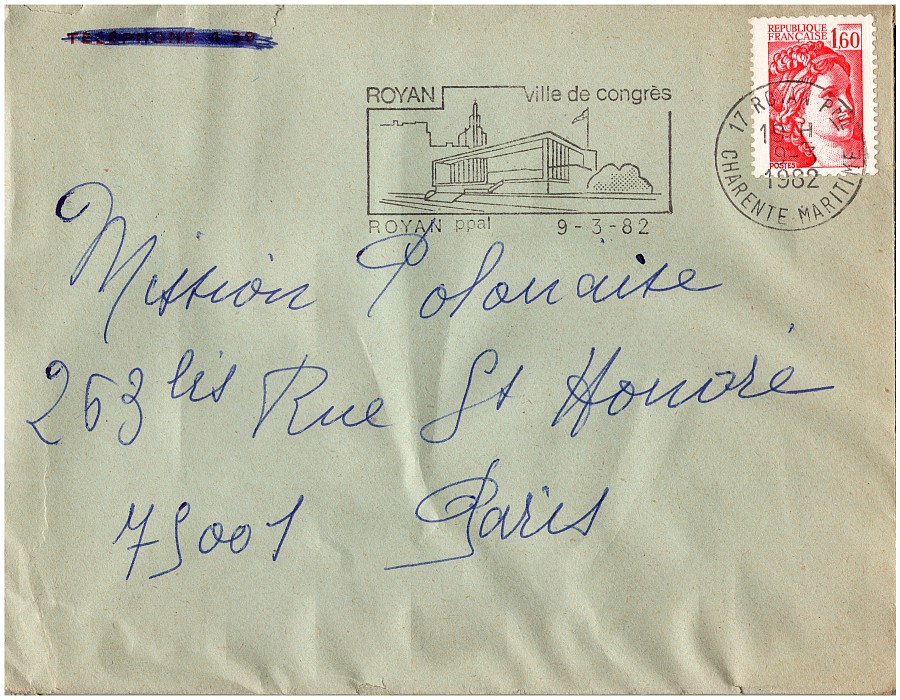 TELEPHONE
REPUBLIQUE
FRANÇAISE 1,60
POSTES
ROYAN ville de congrès
ROYAN ppal 9-3-82
17 ROYAN PPAL
19 H
9-3
1982
CHARENTE MARITIME
Mission Polonaise
263 bis Rue St Honoré
75001 Paris